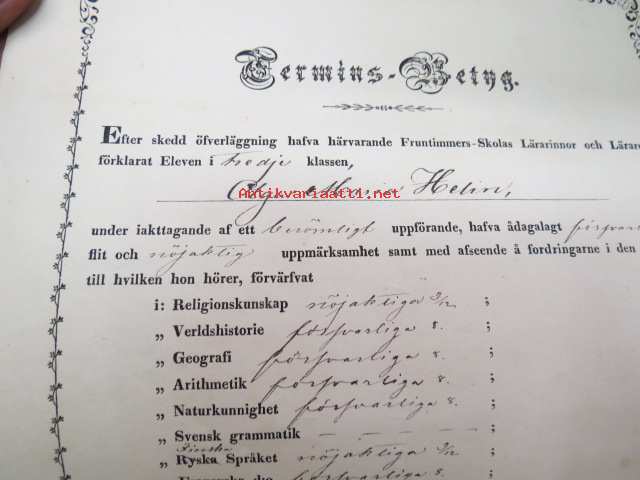 Termins-Betyg.
Efter skedd öfverläggning hafva härvarande Fruntimmers-Skolas Lärarinnor och Lärare
förklarat Eleven i tredje klassen,
Maria Helin,
Antikvariaatti1.net
under iakttagande af ett berömligt uppförande, hafva ådagalagt försvarlig
flit och nöjaktig uppmärksamhet samt med afseende å fordringarne i den
till hvilken hon hörer, förvärfvat
i: Religionskunskap nöjaktiga ;
„ Verldshistorie försvarliga 8. ;
„ Geografi försvarliga 8. ;
„ Arithmetik försvarliga 8. ;
„ Naturkunnighet försvarliga 8. ;
„ Svensk grammatik — — — ;
Finska
„ Ryska Språket nöjaktiga ;
„ d:o försvarliga 8.